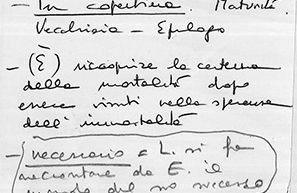 – In copertina. Maturità.
Vecchiaia – Epilogo
– (E) riacquista la certezza
della mortalità dopo
essere vissuti nella speranza
dell'immortalità
– necessario a L. si fa
raccontare da E. il
modo del suo successo